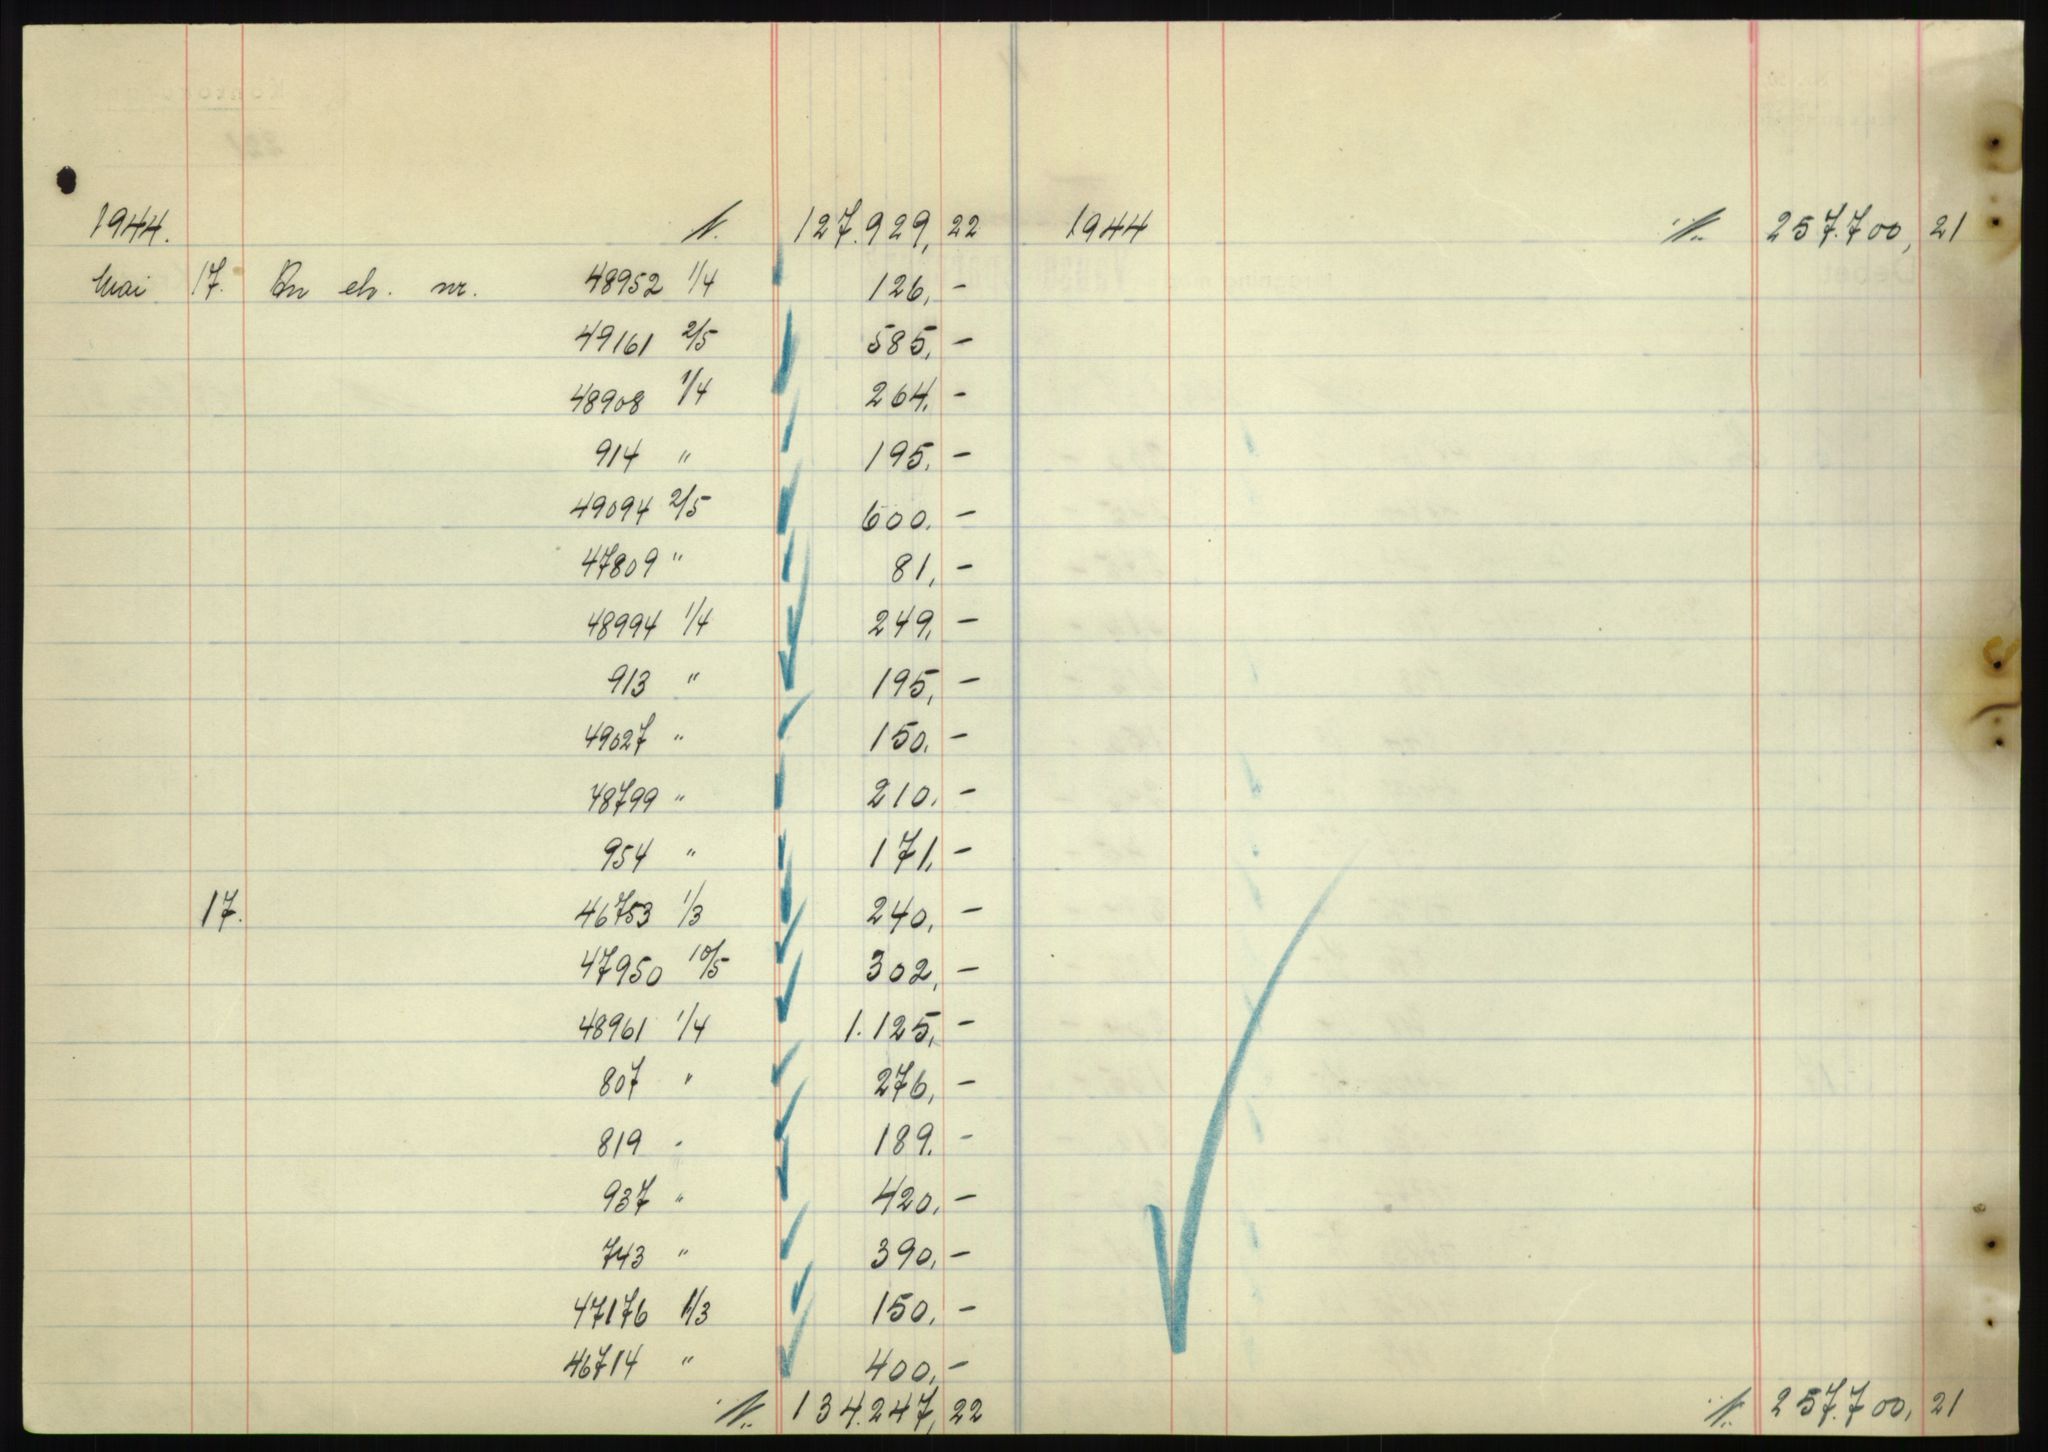 1944. 127.929,22 1944 257.700,21
Mai 17. nr. 48952 1/4 126,-
49161 2/5 585,-
48908 1/4 264,-
914 " 195,-
49094 2/5 600,-
47809 " 81,-
48994 1/4 249,-
913 " 195,-
49027 " 150,-
48799 " 210,-
954 " 171,-
17. 46753 1/3 240,-
47950 10/5 302,-
48961 1/4 1.125,-
807 " 276,-
819 " 189,-
937 " 420,-
743 " 390,-
47176 1/3 150,-
46714 " 400,-
134.247,22 257.700,21